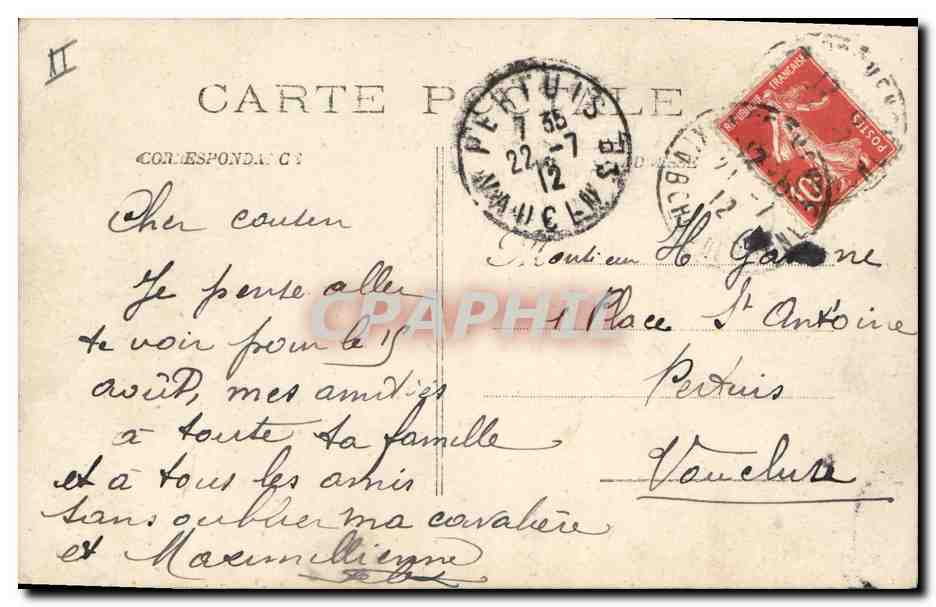 II
CARTE POSTALE
CORRESPONDANCE
PERTUIS
7 35
22 -7
12
VAUCLUSE
REPUBLIQUE FRANÇAISE
POSTES
10
AIX
21 -7
12
Cher cousin
Je pense aller
te voir pour le 15
août, mes amitiés
à toute ta famille
et à tous les amis
sans oublier ma cavalière
et Maximilienne
Monsieur H
1 Place St Antoine
Pertuis
Vaucluse
CPAPHIL